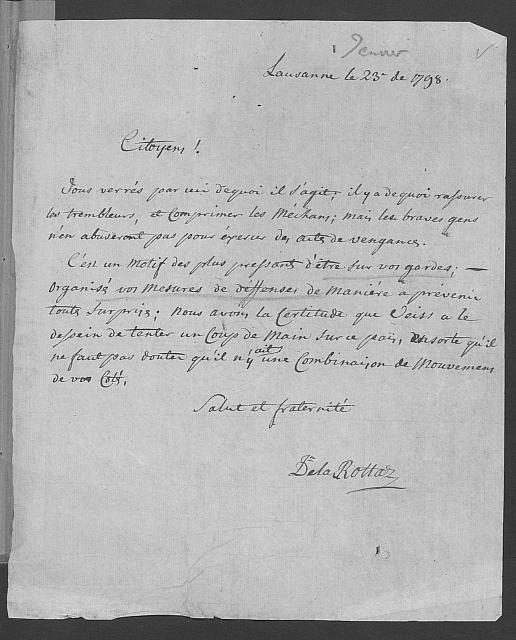 1 Janvier
Lausanne le 23e de 1798.
Citoyens !
Vous verrés par ceci dequoi il s'agit; il y a dequoi rassurer
les trembleurs, et Comprimer les Méchans; mais les braves gens
n'en abuseront pas pour éxercer des actes de vengances.
C'est un Motif des plus pressants d'être sur vos gardes; —
Organisé vos Mesures de deffenses de Maniére a prévenir
toute Surprise; nous avons la Certitude que Veiss a le
dessein de tenter un Coup de Main sur ce païs, ensorte qu'il
ne faut pas douter qu'il n'y ait une Combinaison de Mouvemens
de vos Coté.
Salut et fraternité
De la Rottaz